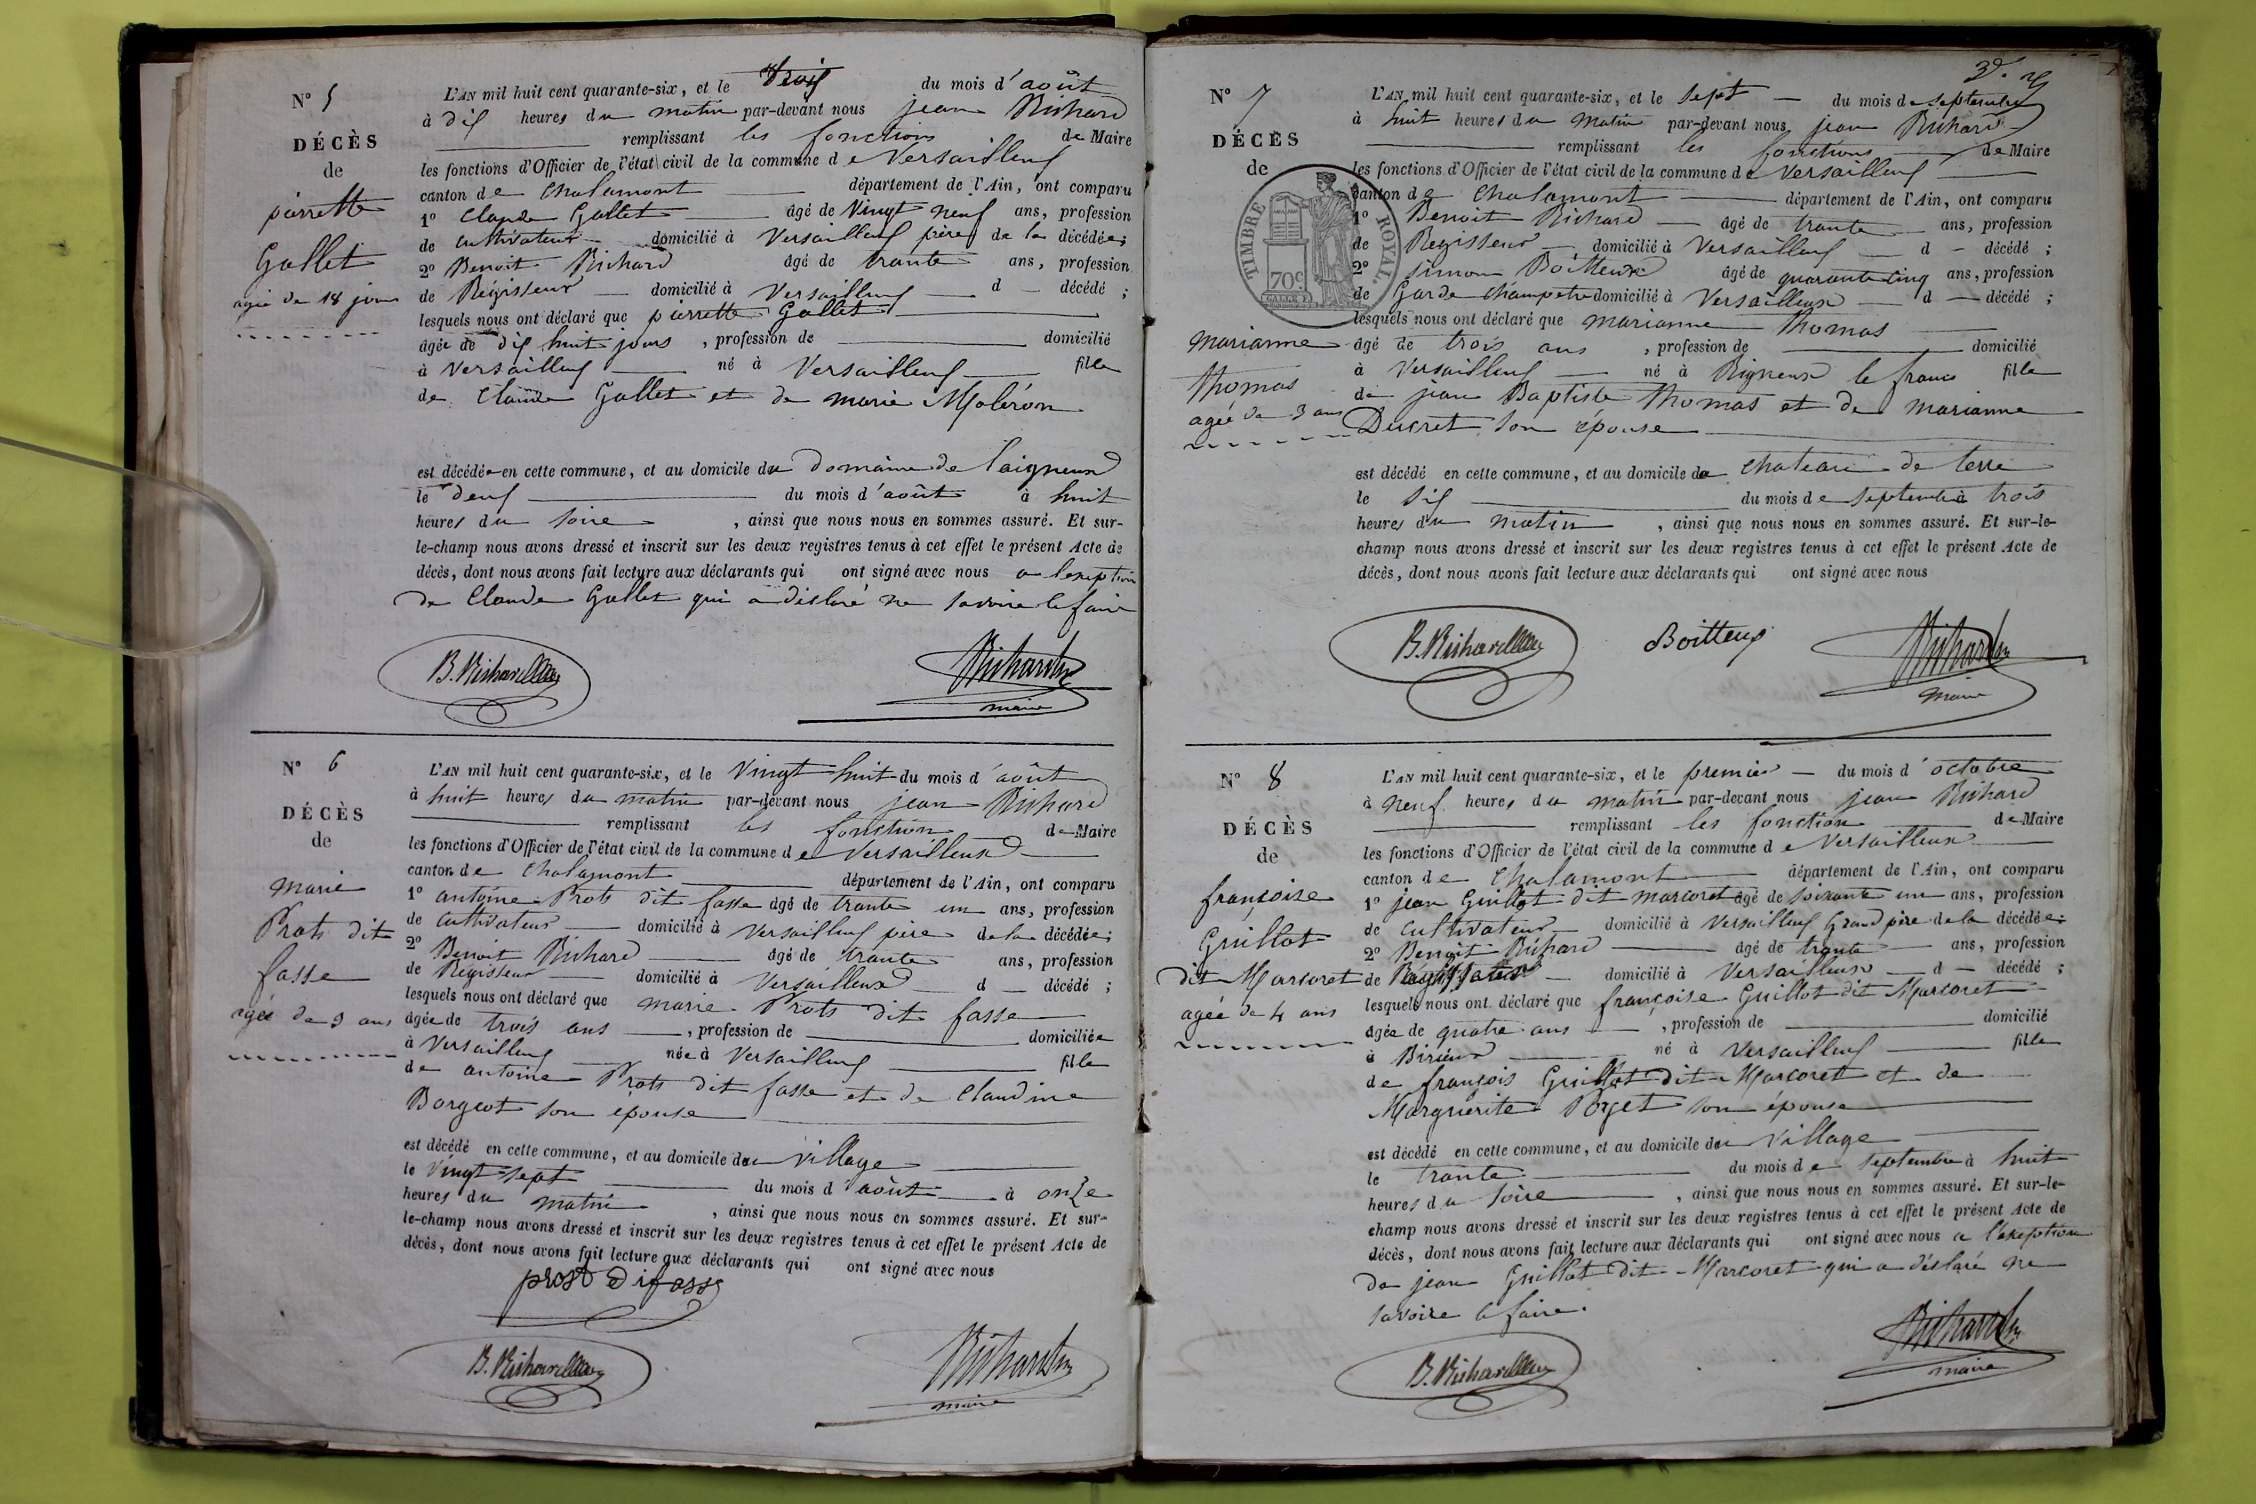 N° 5
DÉCÈS
de
pierrette
Gallet
agée de 18 jours
L'AN mil huit cent quarante-six, et le trois du mois d'août
à dix heures du matin par-devant nous jean Richard
remplissant les fonctions de Maire
les fonctions d'Officier de l'état civil de la commune de Versailleux
canton de Chalamont département de l'Ain, ont comparu
1° Claude Gallet âgé de Vingt neuf ans, profession
de cultivateur domicilié à Versailleux père de la décédée;
2° Benoit Richard âgé de trante ans, profession
de Régisseur domicilié à Versailleux d — décédé ;
lesquels nous ont déclaré que pierrette Gallet
âgée de dix huit jours , profession de domicilié
à Versailleux né à Versailleux fille
de Claude Gallet et de marie Moléron
est décédée en cette commune, et au domicile du Domaine de Laigneux
le deux du mois d'août à huit
heures du soire , ainsi que nous nous en sommes assuré. Et sur-
le-champ nous avons dressé et inscrit sur les deux registres tenus à cet effet le présent Acte de
décès, dont nous avons fait lecture aux déclarants qui ont signé avec nous a l'exeption
de Claude Gallet qui a déclaré ne savoire le faire
B. Richard
Richard
maire
N° 6
DÉCÈS
de
marie
Prots dit
fasse
agée de 3 ans
L'AN mil huit cent quarante-six, et le Vingt huit du mois d'août
à huit heures du matin par-devant nous jean Richard
remplissant les fonction de Maire
les fonctions d'Officier de l'état civil de la commune de Versailleux
canton de Chalamont département de l'Ain, ont comparu
1° antoine Prots dit fasse âgé de trante un ans, profession
de cultivateur domicilié à Versailleux père de la décédée;
2° Benoit Richard âgé de trante ans, profession
de Régisseur domicilié à Versailleux d — décédé ;
lesquels nous ont déclaré que marie Prots dit fasse
âgée de trois ans , profession de domiciliée
à Versailleux née à Versailleux fille
de antoine Prots dit fasse et de Claudine
Borgeot son épouse
est décédé en cette commune, et au domicile du Village
le Vingt sept du mois d'août à onze
heures du matin , ainsi que nous nous en sommes assuré. Et sur-
le-champ nous avons dressé et inscrit sur les deux registres tenus à cet effet le présent Acte de
décès, dont nous avons fait lecture aux déclarants qui ont signé avec nous
prost difasse
B. Richard
Richard
maire
N° 7
DÉCÈS
de
TIMBRE ROYAL
70 c
marianne
thomas
agée de 3 ans
L'AN mil huit cent quarante-six, et le sept — du mois de septembre
à huit heures du matin par-devant nous jean Richard
remplissant les fonctions de Maire
les fonctions d'Officier de l'état civil de la commune de Versailleux
canton de Chalamont département de l'Ain, ont comparu
1° Benoit Richard âgé de trante ans, profession
de Régisseur domicilié à Versailleux d — décédé ;
2° simon Boitteux âgé de quarante cinq ans, profession
de Garde champetre domicilié à Versailleux d — décédé ;
lesquels nous ont déclaré que marianne thomas
âgé de trois ans , profession de domicilié
à Versailleux né à Rigneux le franc fille
de jean Baptiste thomas et de marianne
Ducret son épouse
est décédé en cette commune, et au domicile du chateau de terre
le six du mois de septembre à trois
heures du matin , ainsi que nous nous en sommes assuré. Et sur-le-
champ nous avons dressé et inscrit sur les deux registres tenus à cet effet le présent Acte de
décès, dont nous avons fait lecture aux déclarants qui ont signé avec nous
B. Richard
Boitteux
Richard
maire
N° 8
DÉCÈS
de
françoise
Guillot
dit Marcoret
agée de 4 ans
L'AN mil huit cent quarante-six, et le premier — du mois d'octobre
à neuf heures du matin par-devant nous jean Richard
remplissant les fonction de Maire
les fonctions d'Officier de l'état civil de la commune de Versailleux
canton de Chalamont département de l'Ain, ont comparu
1° jean Guillot dit marcoret âgé de soixante un ans, profession
de cultivateur domicilié à Versailleux Grand père de la décédée;
2° Benoit Richard âgé de trante ans, profession
de Régisseur domicilié à Versailleux d — décédé ;
lesquels nous ont déclaré que françoise Guillot dit Marcoret
âgée de quatre ans , profession de domicilié
à Birieux né à Versailleux fille
de françois Guillot dit Marcoret et de
Marguerite Poget son épouse
est décédé en cette commune, et au domicile du Village
le trante du mois de septembre à huit
heures du soire , ainsi que nous nous en sommes assuré. Et sur-le-
champ nous avons dressé et inscrit sur les deux registres tenus à cet effet le présent Acte de
décès, dont nous avons fait lecture aux déclarants qui ont signé avec nous a l'exeption
de jean Guillot dit Marcoret qui a déclaré ne
savoire le faire.
B. Richard
Richard
maire